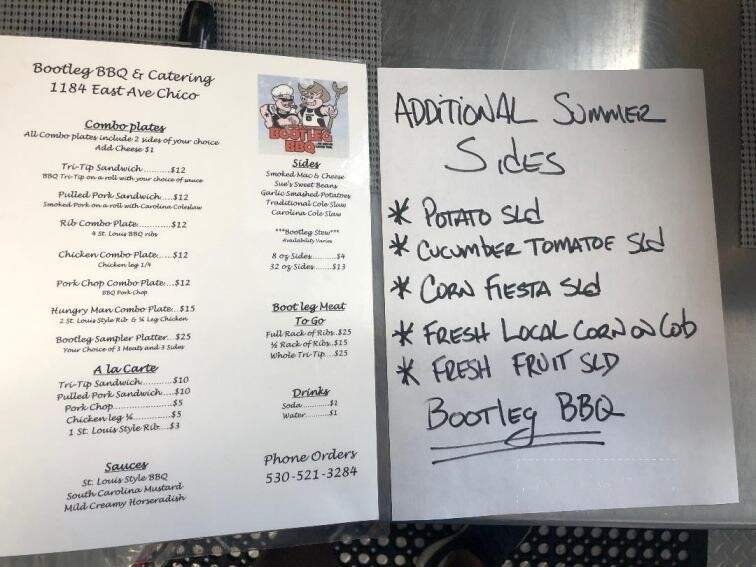 Bootleg BBQ & Catering
1184 East Ave Chico
Combo plates
All Combo plates include 2 sides of your choice
Add Cheese $1
Tri-Tip Sandwich.....$12
BBQ Tri-Tip on a roll with your choice of sauce
Pulled Pork Sandwich.....$12
Smoked Pork on a roll with Carolina Coleslaw
Rib Combo Plate.....$12
4 St. Louis BBQ ribs
Chicken Combo Plate....$12
Chicken leg 1/4
Pork Chop Combo Plate...$12
BBQ Pork Chop
Hungry Man Combo Plate...$15
2 St. Louis Style Rib & ¼ Leg Chicken
Bootleg Sampler Platter...$25
Your Choice of 3 Meats and 3 Sides
A la Carte
Tri-Tip Sandwich..........$10
Pulled Pork Sandwich.....$10
Pork Chop....................$5
Chicken leg ¼..............$5
1 St. Louis Style Rib....$3
Sauces
St. Louis Style BBQ
South Carolina Mustard
Mild Creamy Horseradish
BOOTLEG
BBQ
Sides
Smoked Mac & Cheese
Sue's Sweet Beans
Garlic Smashed Potatoes
Traditional Cole Slaw
Carolina Cole Slaw
***Bootleg Stew***
Availability Varies
8 oz Sides........$4
32 oz Sides.......$13
Boot leg Meat
To Go
Full Rack of Ribs..$25
½ Rack of Ribs..$15
Whole Tri-Tip....$25
Drinks
Soda...........$1
Water..........$1
Phone Orders
530-521-3284
ADDITIONAL SUMMER
SIDES
* POTATO SLD
* CUCUMBER TOMATOE SLD
* CORN FIESTA SLD
* FRESH LOCAL CORN ON COB
* FRESH FRUIT SLD
BOOTLEG BBQ